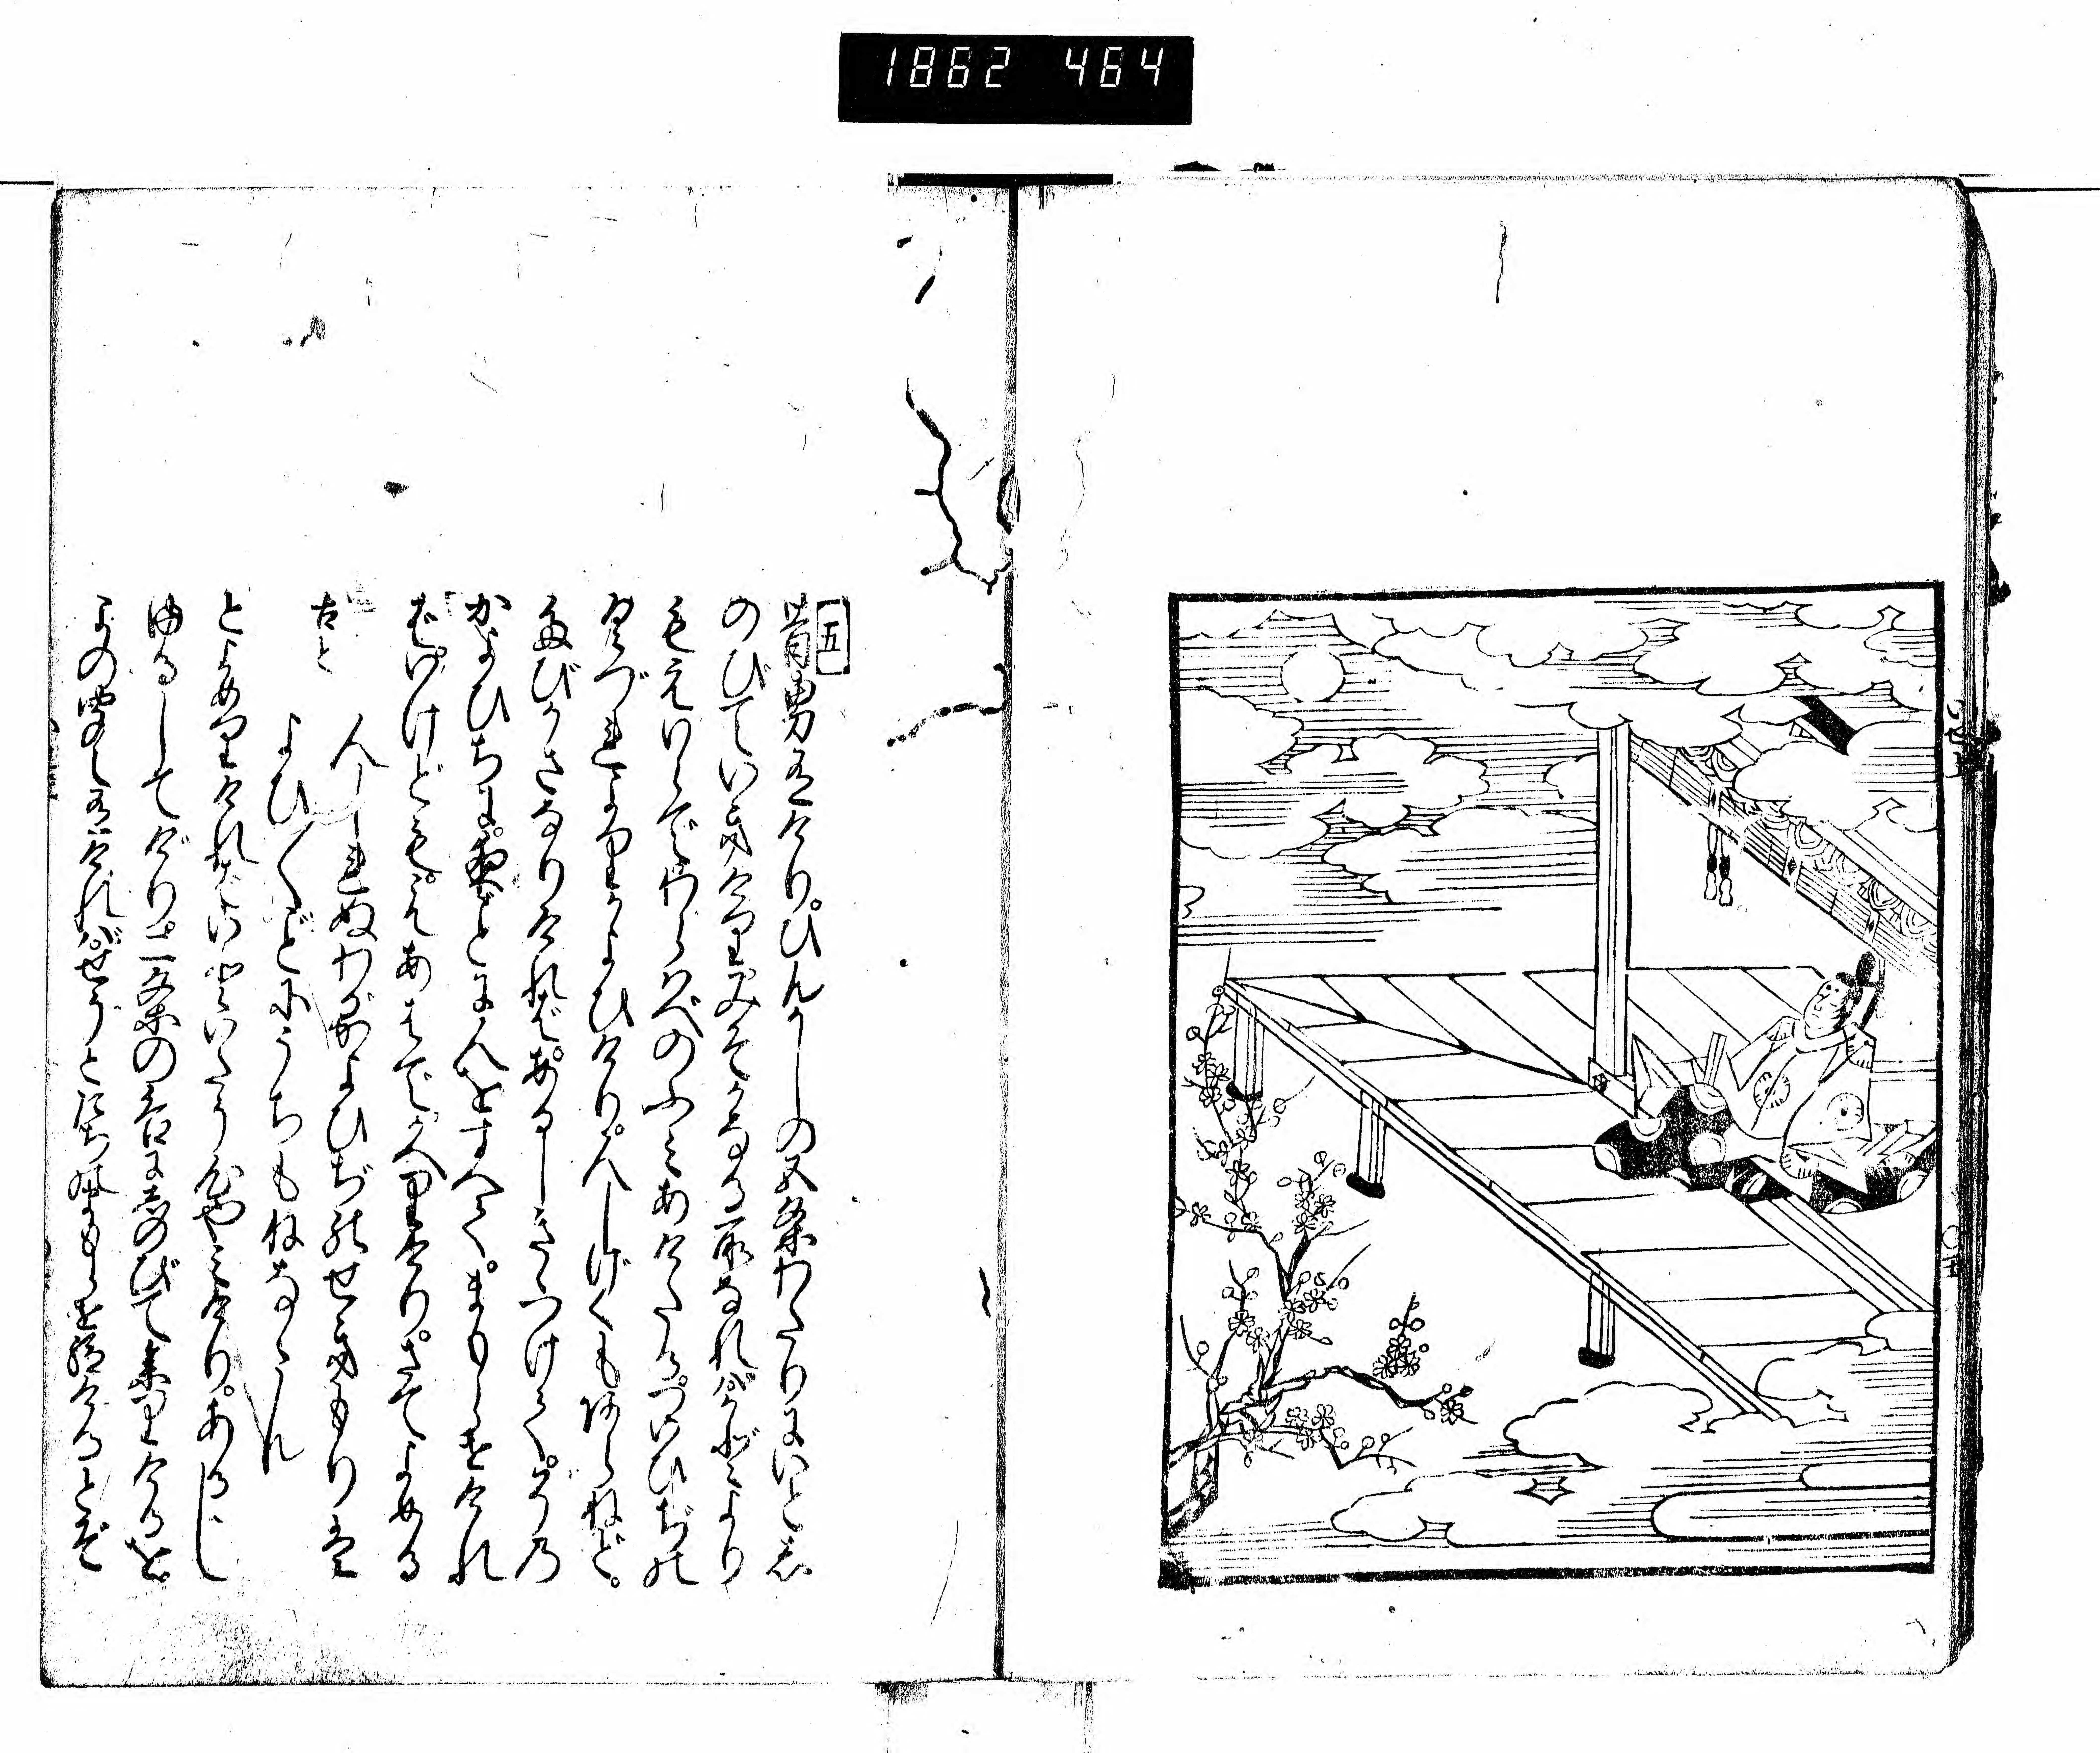 1862 464
五
昔男有けり。ひんがしの五条わたりにいとし
のびていきけりみそかなる所なればかどより
もえいらでわらはべのふみあけたるついひぢの
くづれよりかよひけり。人しげくもあらねど。
たびかさなりければ。あるじきゝつけて。その
かよひぢに。夜ごとに人をすへて。まもらせけれ
ば。いけどもえあはでかへりけり。さてよめる
古今 人しれぬわがかよひぢのせきもりは
よひ〳〵ごとにうちもねなゝん
とよめりければいといたう心やみけり。あるじ
ゆるしてけり。二条の后に忍びて参りけるを
よの聞え有ければせうとたちのまもらせ給けるとぞ